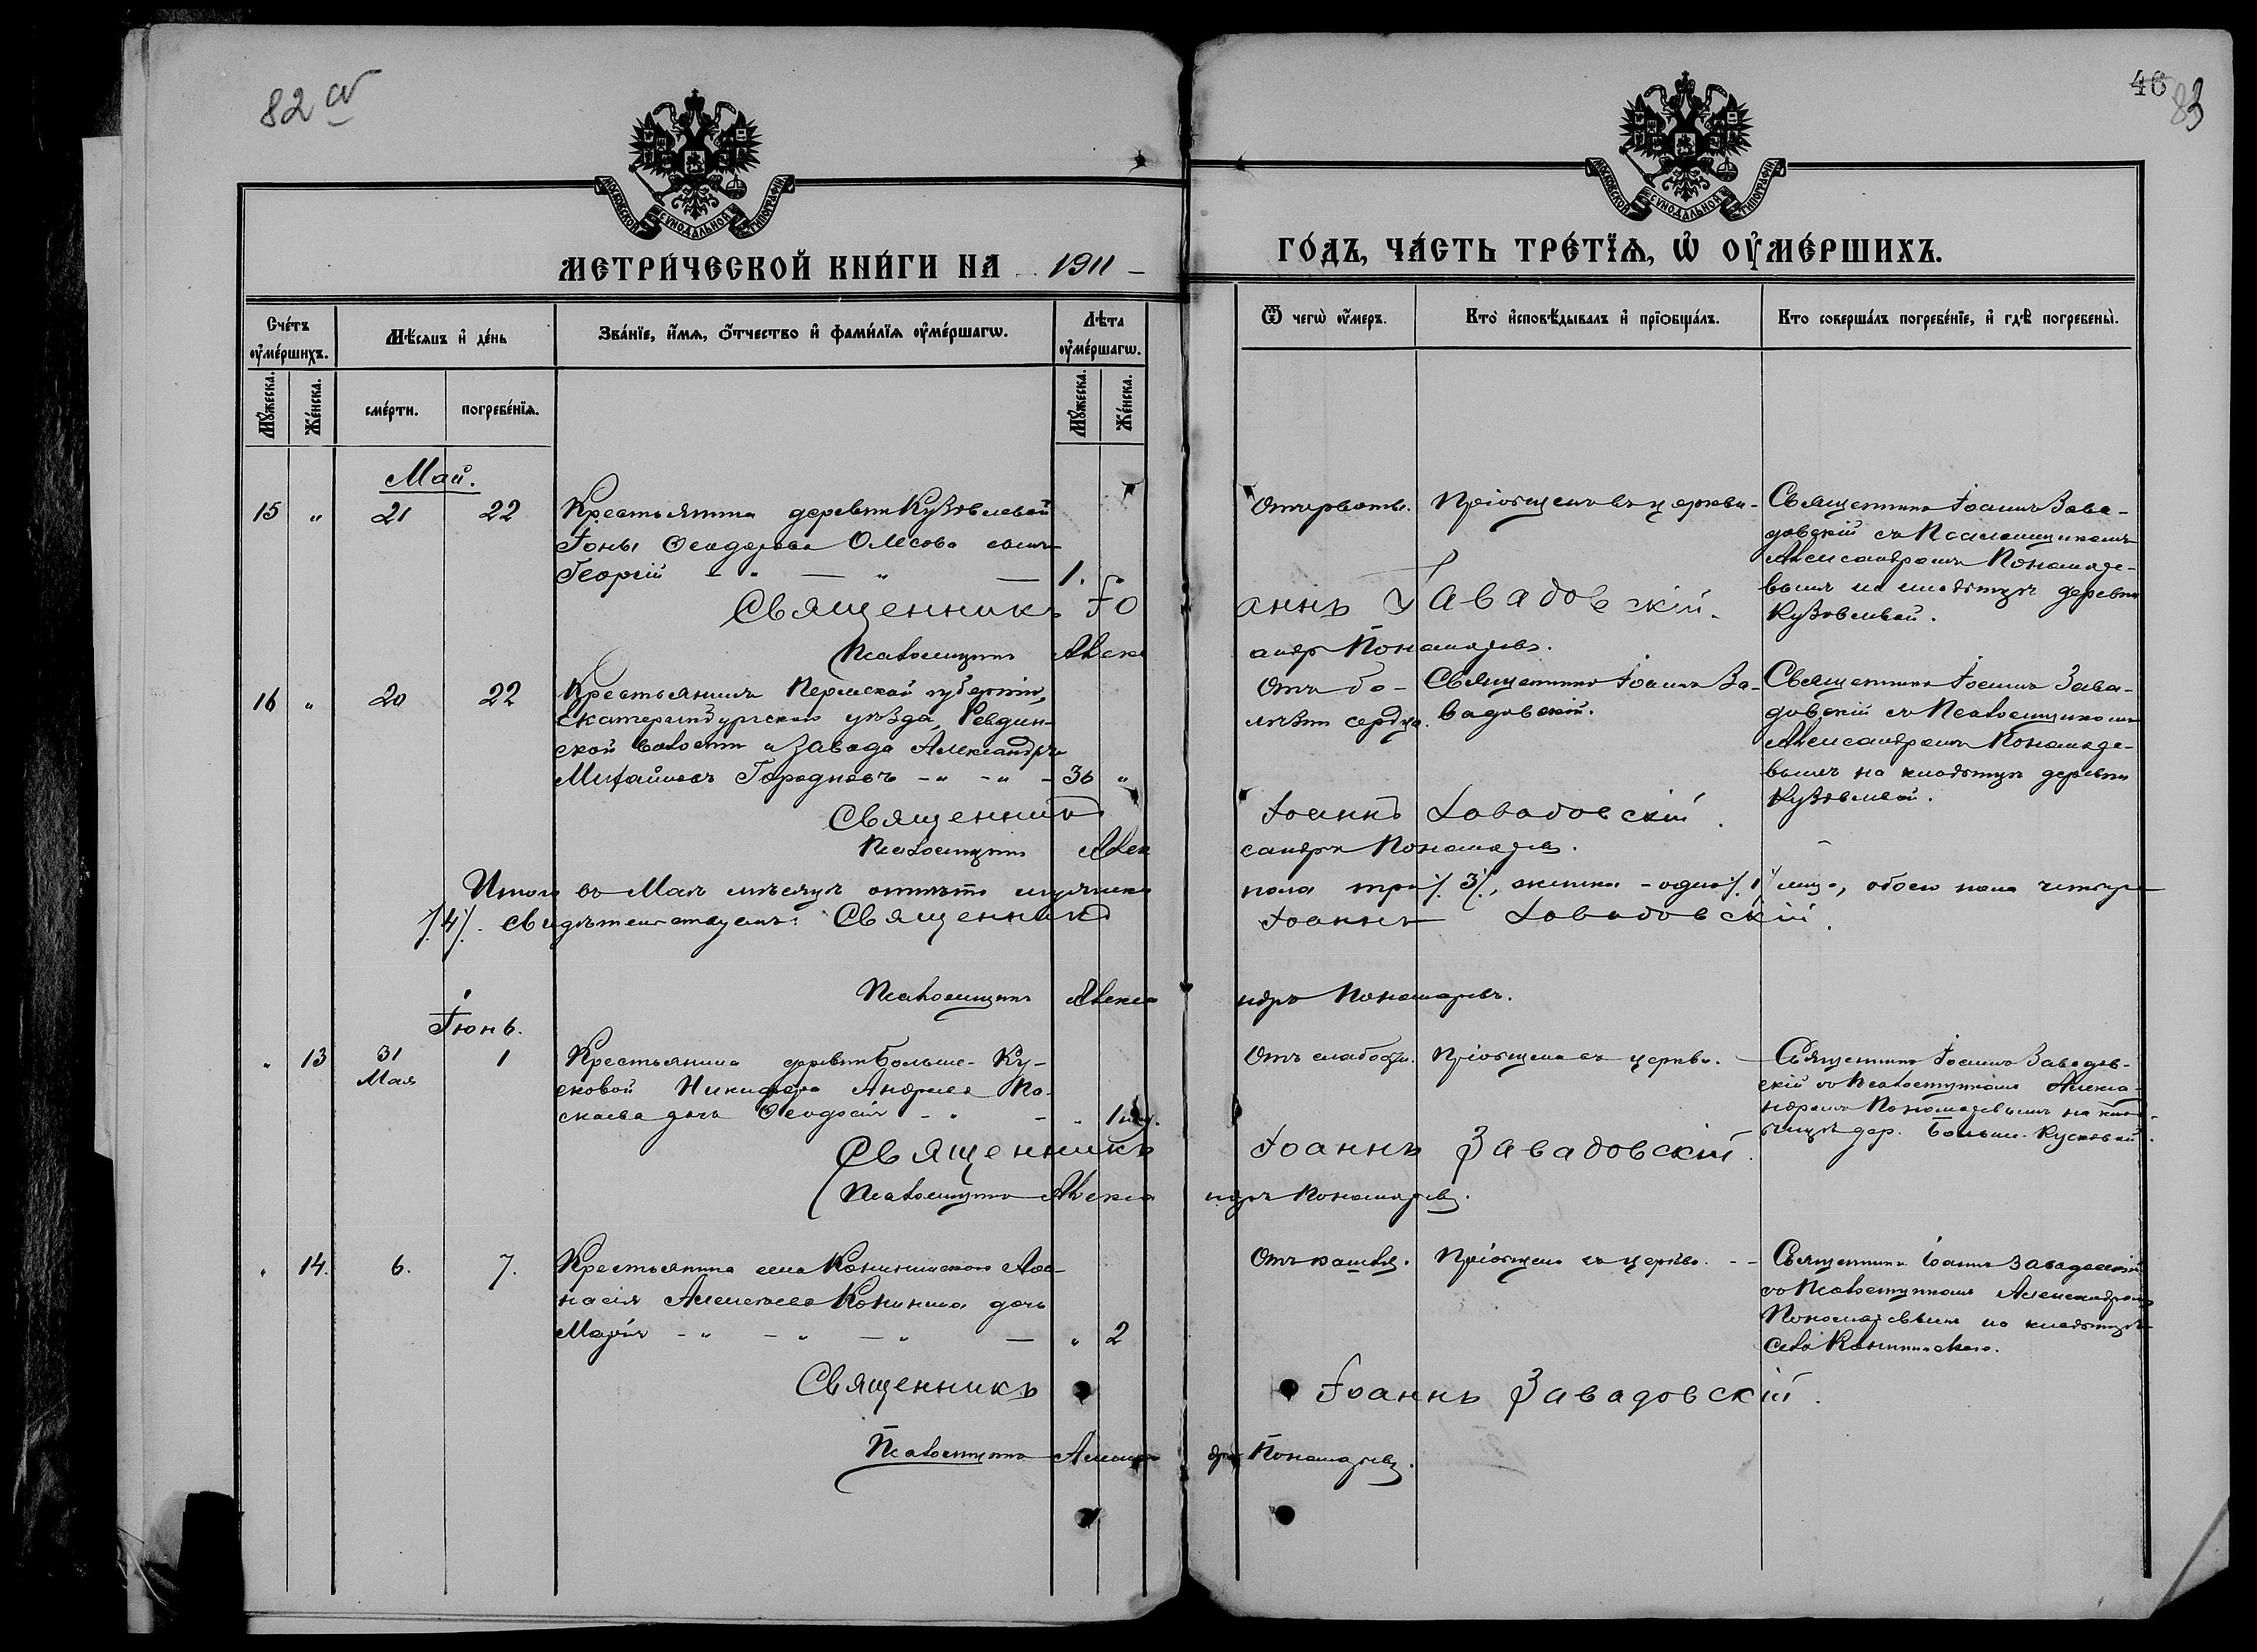 82 об
46
83
МОСКОВСКОЙ СѴНОДАЛЬНОЙ ТИПОГРАФІИ
МОСКОВСКОЙ СѴНОДАЛЬНОЙ ТИПОГРАФІИ
МЕТРИ́ЧЕСКОЙ КНИ́ГИ НА 1911
ГО́ДЪ, ЧА́СТЬ ТРЕ́ТЇѦ, Ѡ҆ ОУ҆МЕ́РШИХЪ.
Сче́тъ оу҆ме́ршихъ.
Мꙋ́жеска.
Же́нска.
Мѣ́сѧцъ и҆ де́нь
сме́рти.
погребе́нїѧ.
Зва́нїе, и҆́мѧ, ѻ҆́тчество и҆ фами́лїѧ оу҆ме́ршагѡ.
Лѣ́та оу҆ме́ршагѡ.
Мꙋ́жеска.
Же́нска.
Ѿ чегѡ̀ оу҆́меръ.
Кто̀ и҆сповѣ́дывалъ и҆ прїѻбща́лъ.
Кто соверша́лъ погребе́нїе, и҆ гдѣ̀ погребены̀.
Май.
15 " 21 22
Крестьянина деревни Кузовлевой
Іоны Ѳеодорова сынъ
Георгій 1.
Пріобщенъ въ церкви
Священникъ Іоаннъ Зава-
довскій съ Псаломщикомъ
Александромъ Пономаре-
вымъ на кладбищѣ деревни
Кузовлевой.
Священникъ Іоаннъ Завадовскій.
Псаломщикъ Александръ Пономаревъ.
16 " 20 22
Крестьянинъ Пермской губерніи,
Екатеринбургскаго уѣзда, Ревдин-
ской волости и завода Александръ
Михайловъ Городновъ 36 "
Отъ бо-
лѣзни сердца.
Священникъ Іоаннъ За-
вадовскій.
Священникъ Іоаннъ Зава-
довскій съ Псаломщикомъ
Александромъ Пономаре-
вымъ на кладбищѣ деревни
Кузовлевой.
Священникъ Іоаннъ Завадовскій.
Псаломщикъ Александръ Пономаревъ.
Итого въ Маѣ мѣсяцѣ отпѣто мужска пола три /3/, женска - одно /1/ лицо, обоего пола четыре
/4/. Свидѣтельствуемъ: Священникъ Іоаннъ Завадовскій.
Псаломщикъ Александръ Пономаревъ.
Іюнь.
" 13 31 Мая 1
Крестьянина деревни Больше-Ку-
сковой Никифора Андреева
дочь Ѳеодосія 1 нед.
Отъ слабости. Пріобщена въ церкви.
Священникъ Іоаннъ Завадов-
скій съ Псаломщикомъ Алекса-
ндромъ Пономаревымъ на клад-
бищѣ дер. Больше-Кусковой.
Священникъ Іоаннъ Завадовскій.
Псаломщикъ Александръ Пономаревъ.
" 14. 6. 7.
Крестьянина села Конининскаго Аѳа-
насія Алексѣева Конинина дочь
Марія " 2
Отъ кашля. Пріобщена въ церкви.
Священникъ Іоаннъ Завадовскій
съ Псаломщикомъ Александромъ
Пономаревымъ на кладбищѣ
села Конининскаго.
Священникъ Іоаннъ Завадовскій.
Псаломщикъ Александръ Пономаревъ.